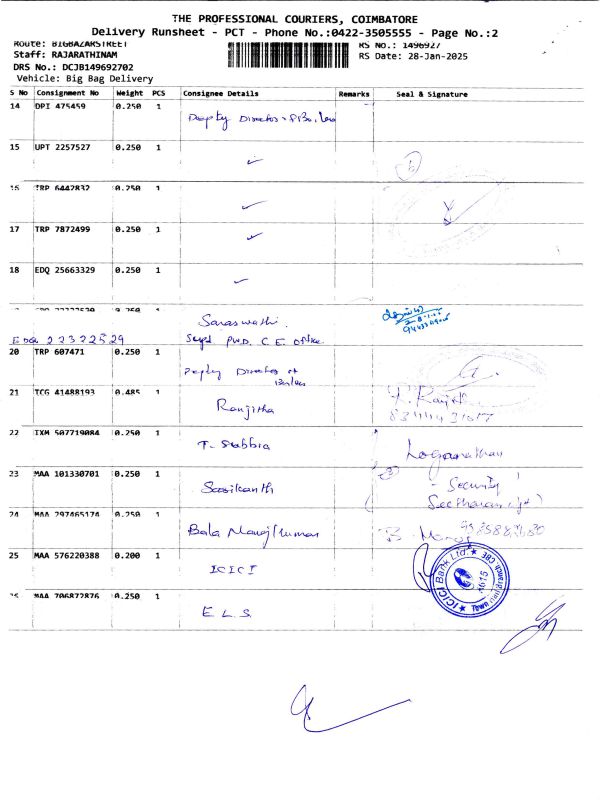 THE PROFESSIONAL COURIERS, COIMBATORE
Delivery Runsheet - PCT - Phone No.:0422-3505555 - Page No.:2
Route: BIGBAZARSTREET
RS No.: 1496927
Staff: RAJARATHINAM
RS Date: 28-Jan-2025
DRS No.: DCJB149692702
Vehicle: Big Bag Delivery
S No Consignment No Weight PCS Consignee Details Remarks Seal & Signature
14 DPI 475459 0.250 1
Director
15 UPT 2257527 0.250 1 ✓
16 TRP 6442832 0.250 1 ✓
17 TRP 7872499 0.250 1 ✓
18 EDQ 25663329 0.250 1 ✓
Saraswathi
EDQ 22322529 P.W.D. C.E. office
20 TRP 607471 0.250 1
Deputy Director
21 TCG 41488193 0.485 1 Ranjitha
22 IXM 507719084 0.250 1
Loganathan
23 MAA 101330701 0.250 1 Sasikanth
- Security
24 MAA 797465174 0.250 1 Bala Manojkumar
25 MAA 576220388 0.200 1 ICICI
ICICI Bank Ltd.
26 MAA 706872876 0.250 1 E L S